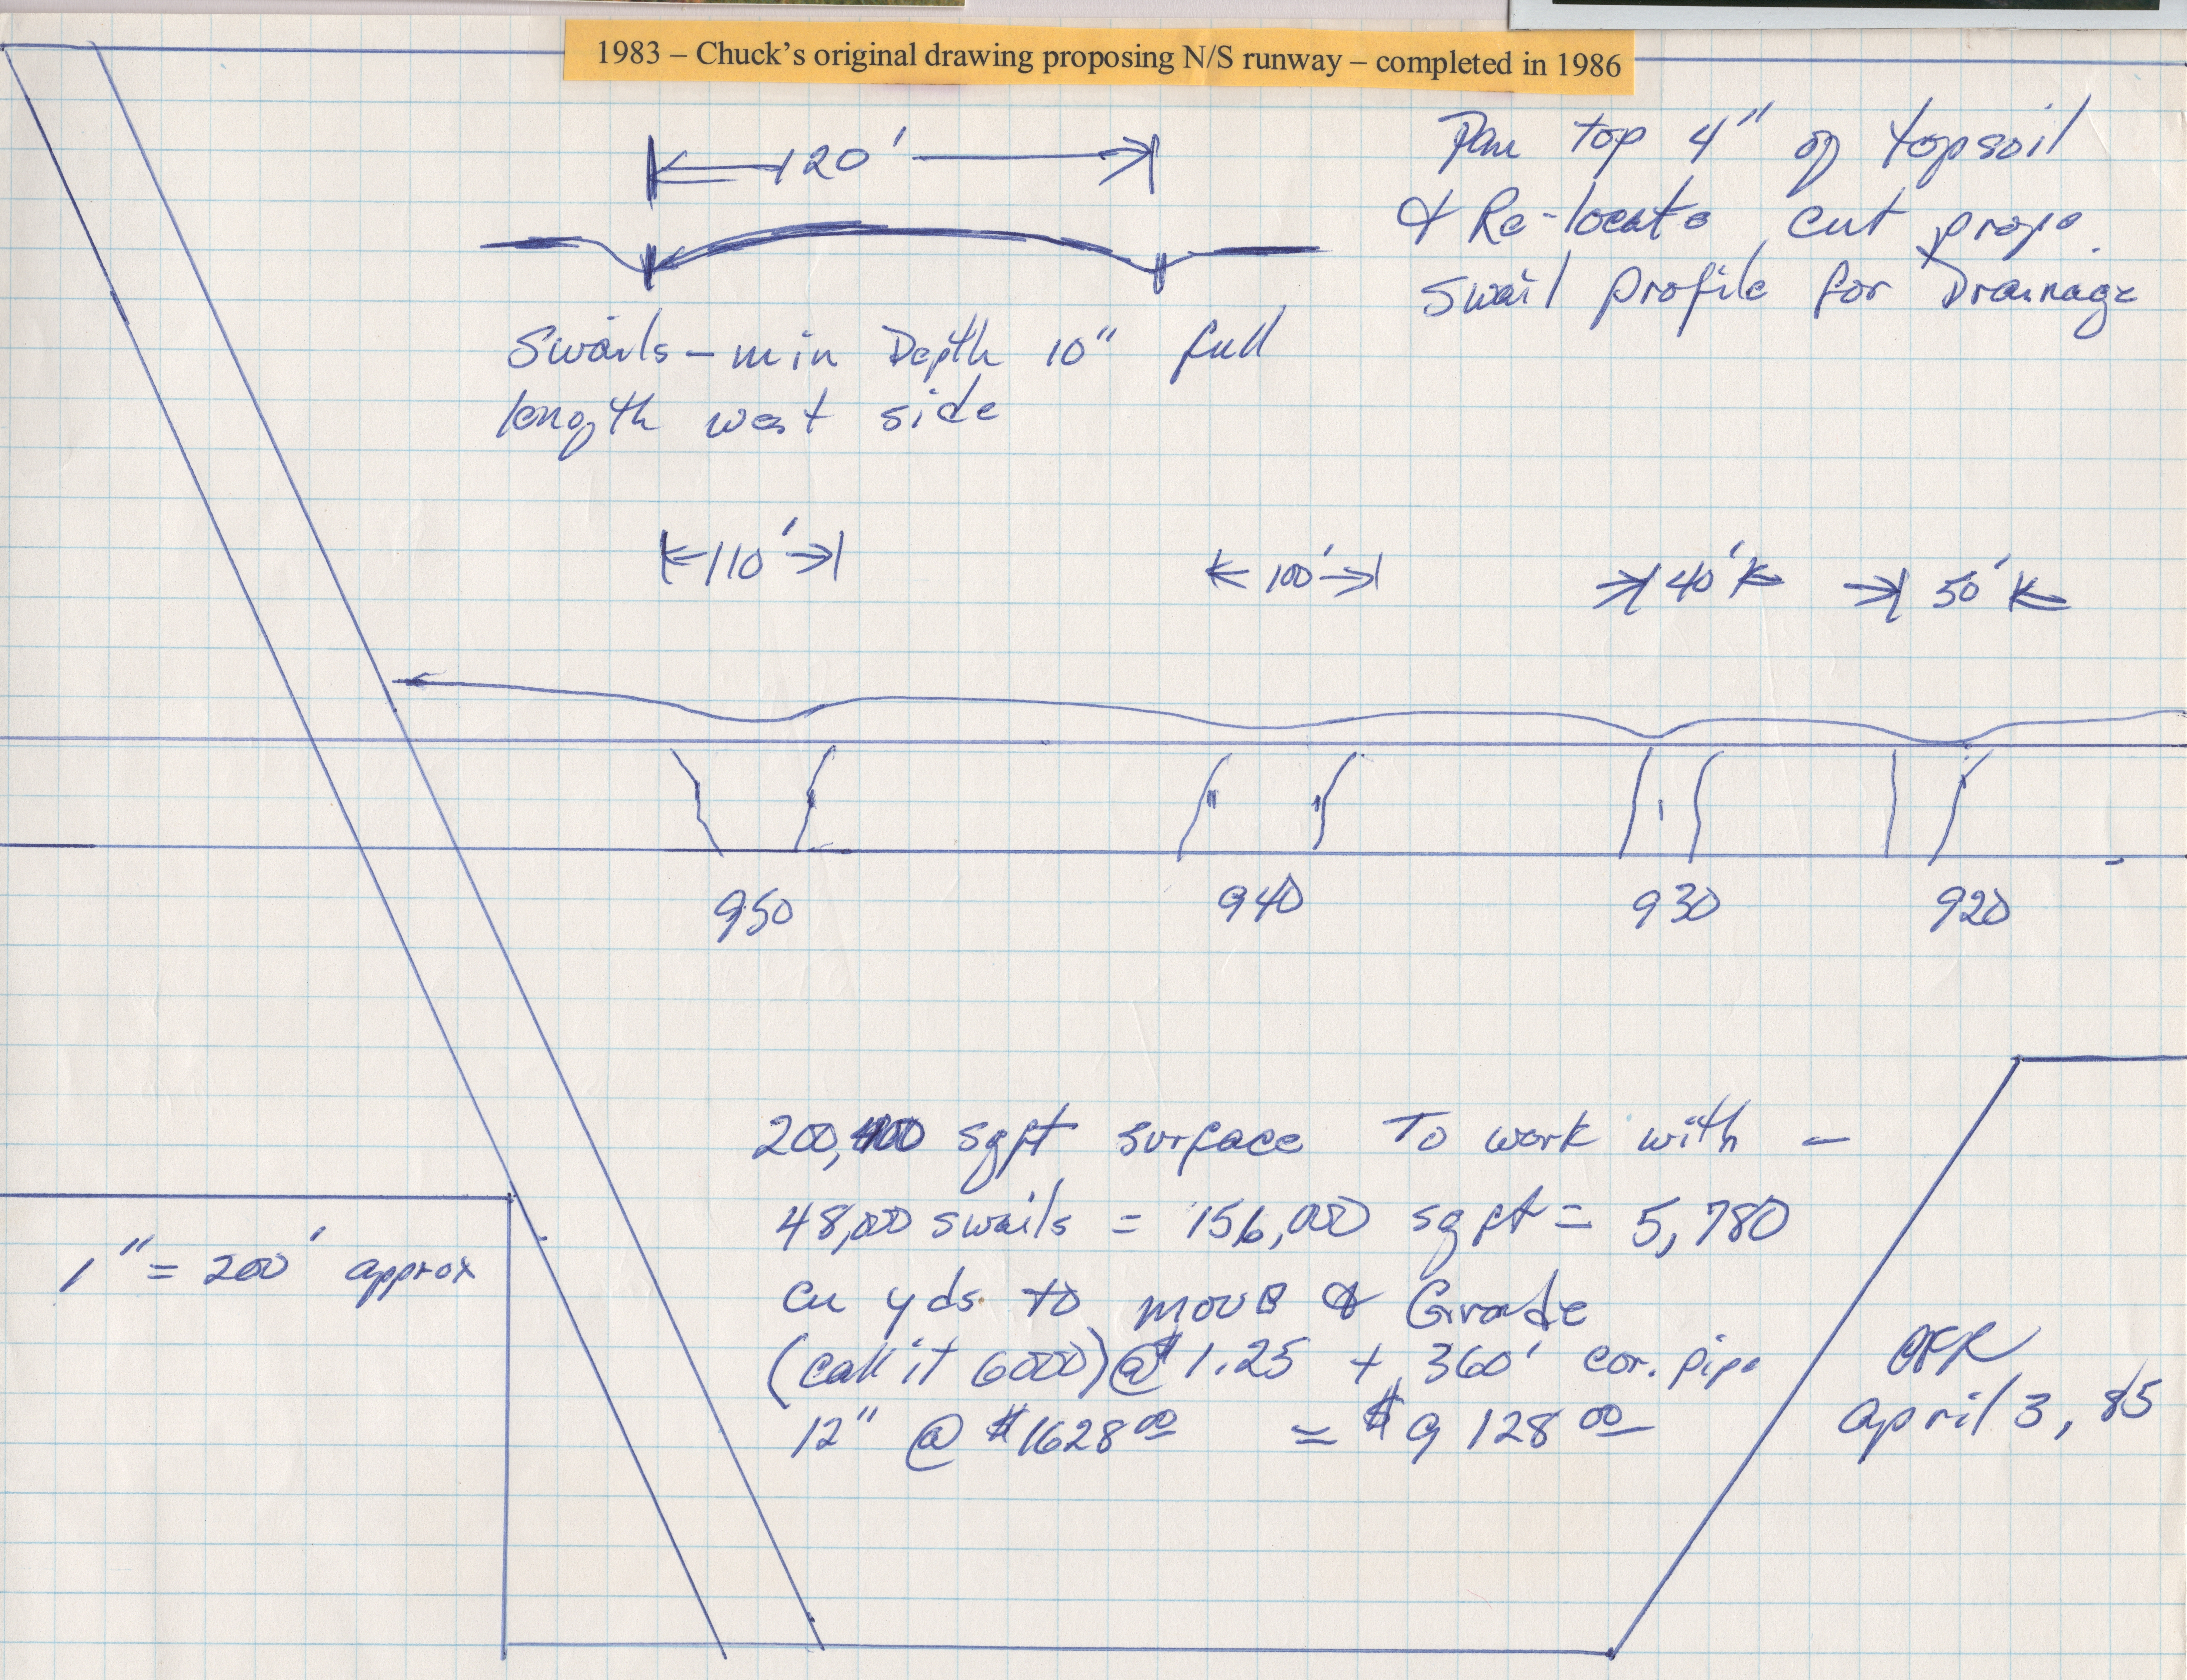 1983 – Chuck's original drawing proposing N/S runway – completed in 1986
120'
Pan top 4" of topsoil
& Re-locate, cut prope.
swail profile for Drainage
Swails – min Depth 10" full
length west side
110'
100'
40'
50'
950
940
930
920
200,400 sqft surface To work with –
48,000 swails = 156,000 sq ft = 5,780
cu yds to move & Grade
(call it 6000) @ $1.25 + 360' cor. pipe
12" @ $1628 00 = $9128 00
1" = 200' approx
April 3, 85